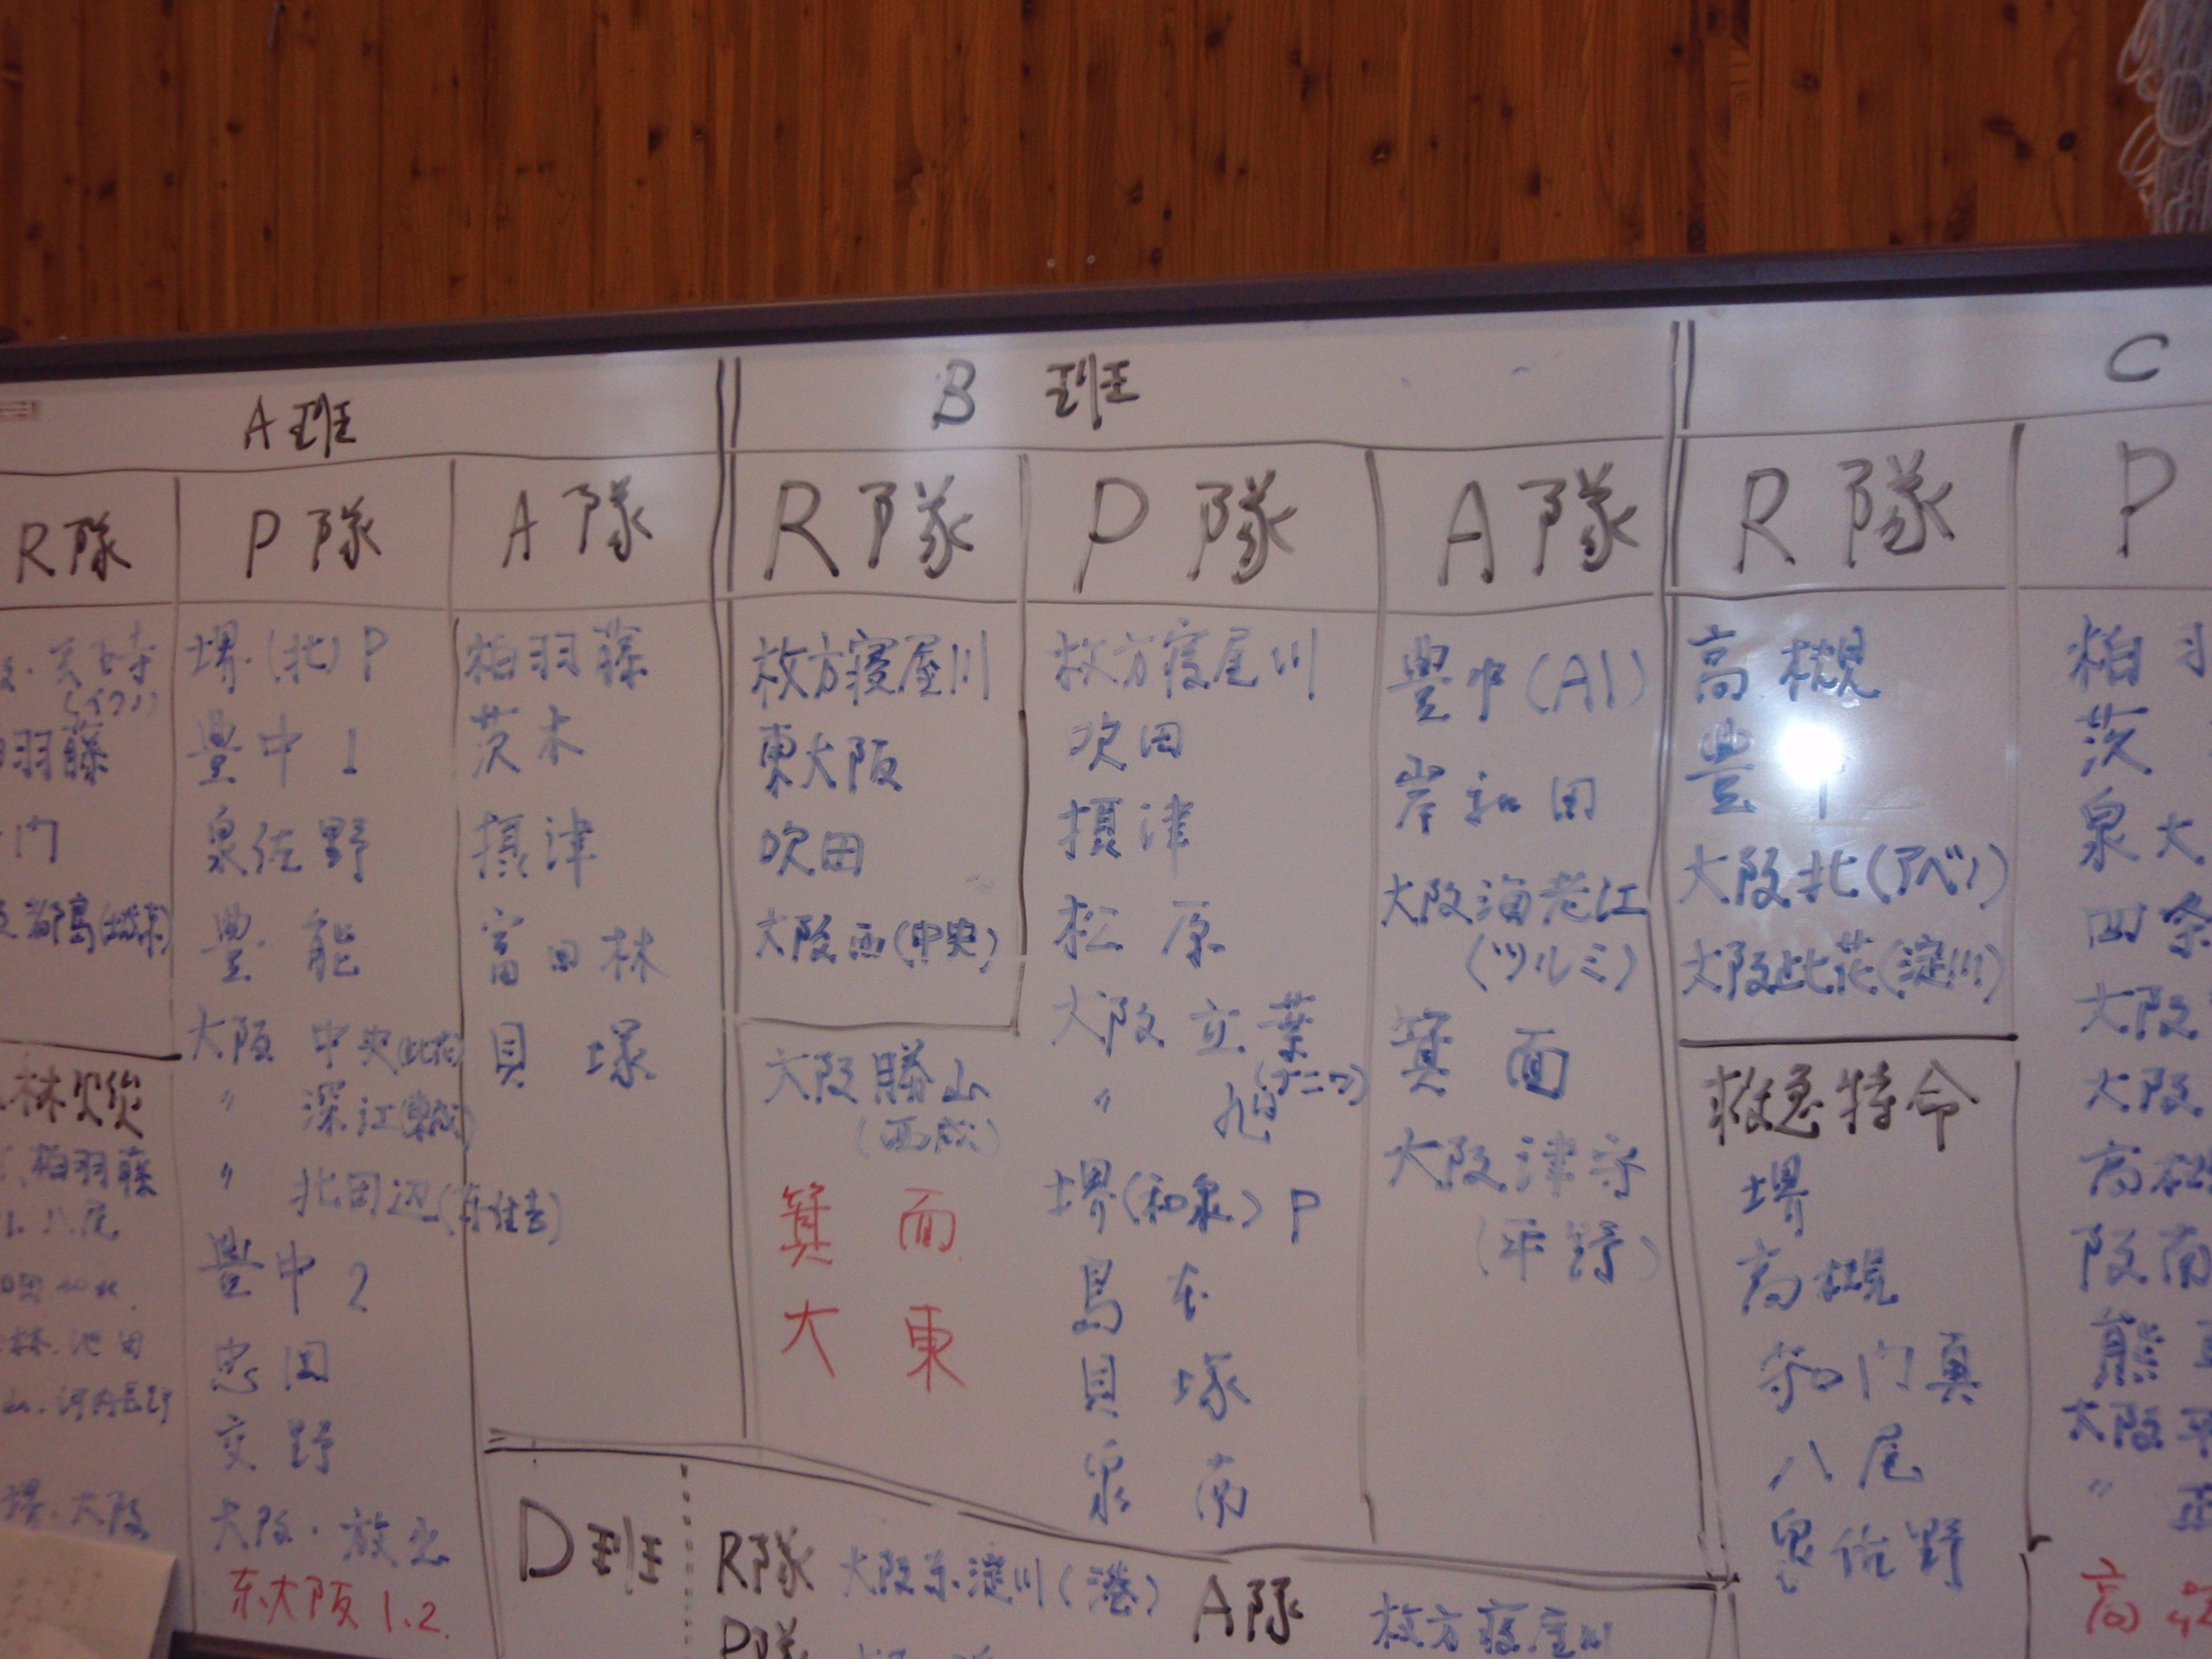 A班
R隊
羽藤
門
都島(城東)
林火災
柏羽藤
八尾
林.池田
山.河内長野
堺.大阪
P隊
堺.(北)P
豊中1
泉佐野
豊能
大阪 中央(此花)
〃 深江(東成)
〃 北田辺(東住吉)
豊中2
忠岡
交野
大阪.放出
东大阪1.2.
A隊
柏羽藤
茨木
摂津
富田林
貝塚
B班
R隊
枚方寝屋川
東大阪
吹田
大阪西(中央)
大阪勝山
(西成)
箕面
大東
P隊
枚方寝屋川
吹田
摂津
松原
大阪立葉
(ナニワ)
〃 旭
堺(和泉)P
島本
貝塚
泉南
A隊
豊中(A1)
岸和田
大阪海老江
(ツルミ)
箕面
大阪津守
(平野)
C
R隊
高槻
豊中
大阪北(アベノ)
大阪此花(淀川)
救急特命
堺
高槻
守口門真
八尾
泉佐野
P
柏羽
茨
泉大
四条
大阪
大阪
高槻
阪南
熊
大阪平
〃
高
D班
R隊 大阪东淀川(港)
P隊
A隊 枚方寝屋川